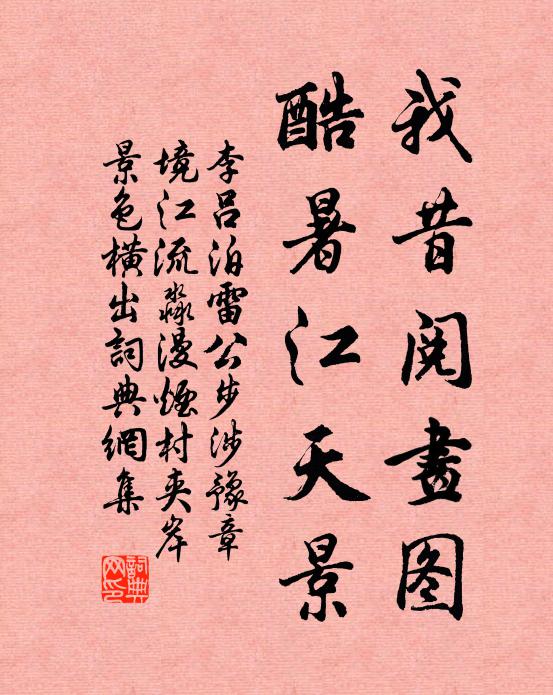 我昔阅畫图
酷暑江天景
李呂泊雷公步涉豫章
境江流淼漫煙村夾岸
景色橫出詞典網集
詞典网印